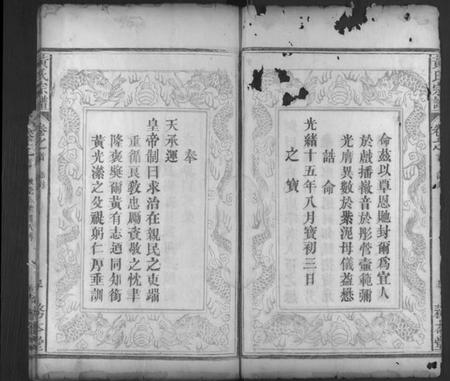 命茲以覃恩貤封爾為宜人
於戲播徽音於彤管壼範彌
光膺異數於紫泥母儀益懋
誥命
光緒十五年八月寶初三日
之寶
奉
天承運
皇帝制曰求治在親民之吏端
重循良教忠勵資敬之忱聿
隆褒獎爾黃有志迺同知銜
黃光瀠之父禔躬仁厚垂訓
黃氏宗譜
卷之首
黃氏宗譜